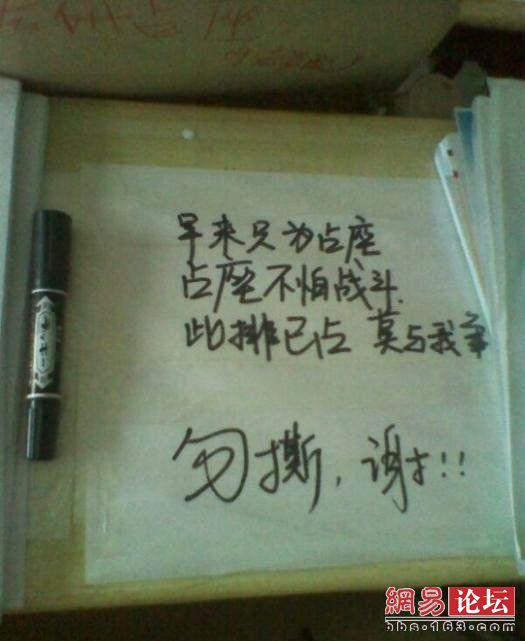 早来只为占座
占座不怕战斗.
此排已占 莫与我争
勿撕，谢谢!!
网易论坛
bbs.163.com